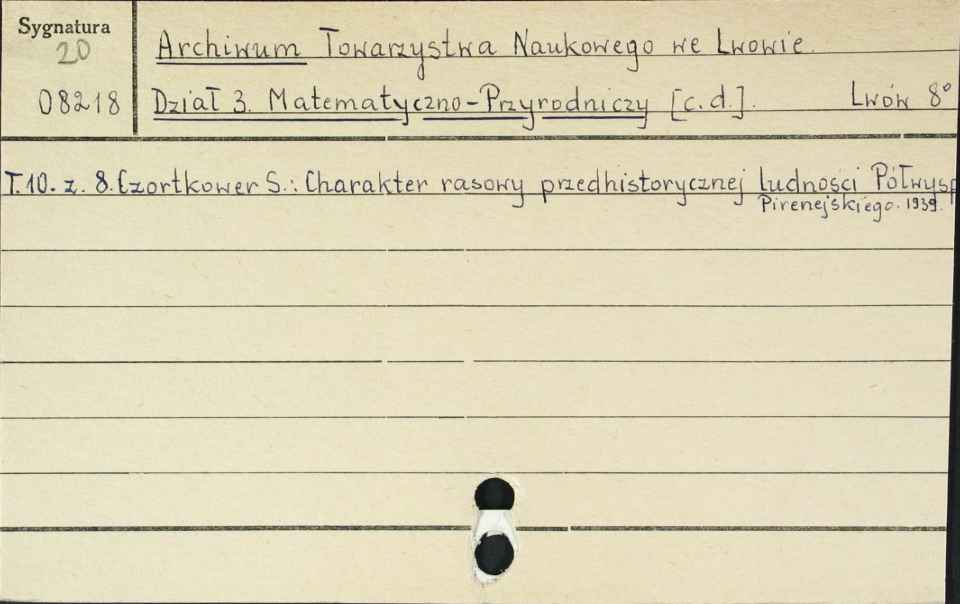 Sygnatura
20
08218
Archiwum Towarzystwa Naukowego we Lwowie.
Dział 3. Matematyczno-Przyrodniczy [c.d.]. Lwów 8°
T.10. z. 8. Czortkower S.: Charakter rasowy przedhistorycznej ludności Półwysp
Pirenejskiego. 1939.